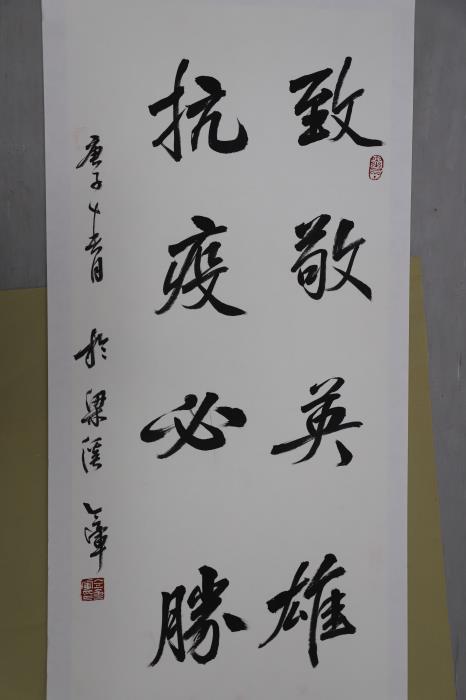 致敬英雄
抗疫必勝
庚子 於梁溪